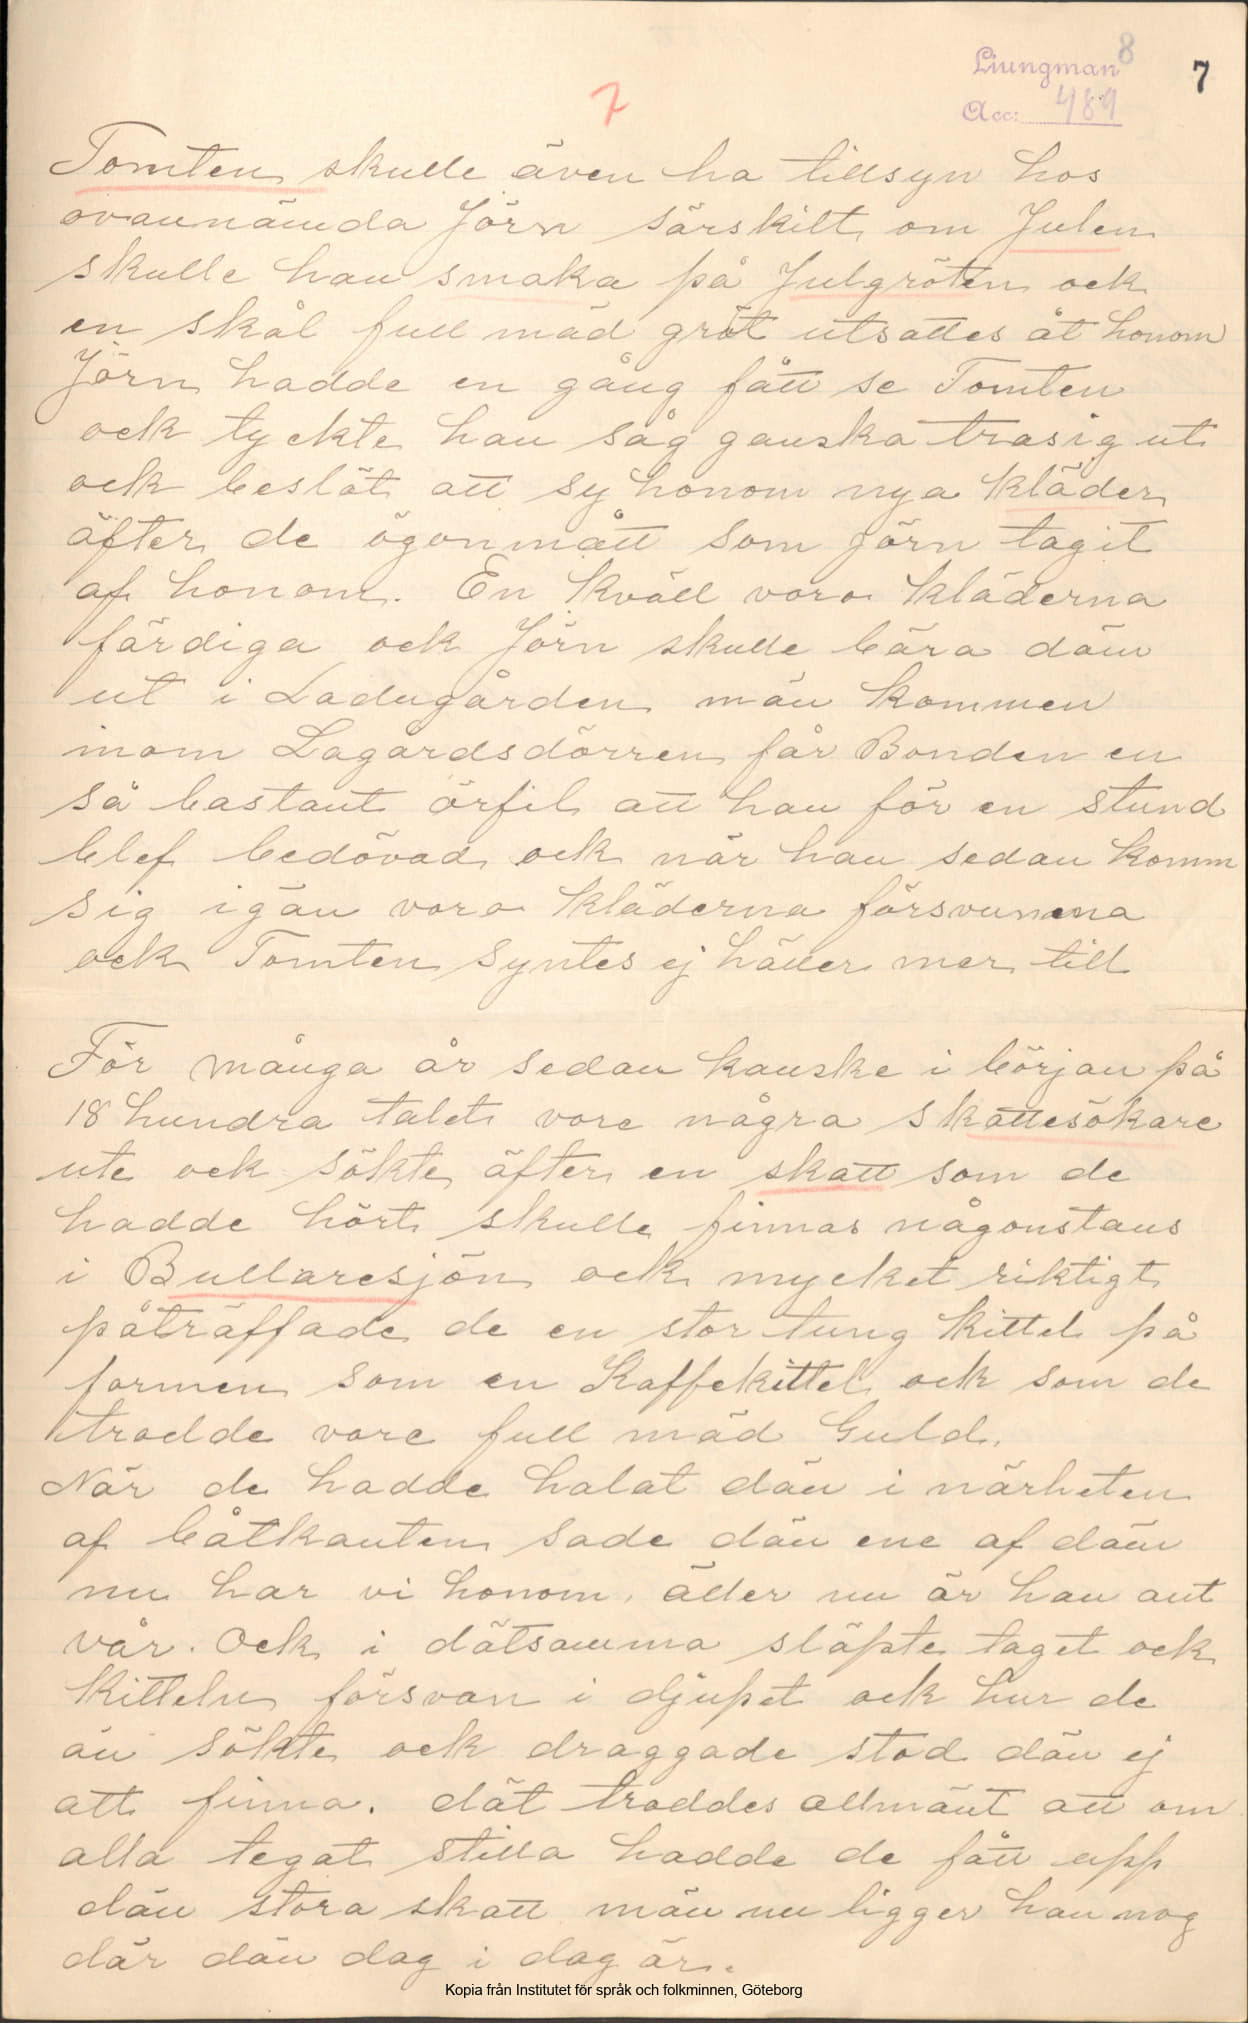 8
Ljungman
7
Acc: 489
7
Tomten skulle även ha tillsyn hos
ovannämda Jörn särskilt om Julen
skulle han smaka på Julgröten ock
en skål full mäd gröt utsattes åt honom
Jörn hadde en gång fått se Tomten
ock tyckte han såg ganska trasig ut
ock beslöt att sy honom nya kläder
äfter de ögonmått som Jörn tagit
af honom. En kväll voro kläderna
färdiga ock Jörn skulle bära däm
ut i Ladugården män kommen
inom Lagårdsdörren får Bonden en
så bastant örfil att han för en stund
blef bedövad ock när han sedan komm
sig igän voro kläderna försvunna
ock Tomten syntes ej häller mer till
För många år sedan kanske i början på
18 hundra talet vore några skattesökare
ute ock sökte äfter en skatt som de
hadde hört skulle finnas någonstans
i Bullaresjön ock mycket riktigt
påträffade de en stor tung kittel på
formen som en Kaffekittel ock som de
trodde vore full mäd Guld.
När de hadde halat dän i närheten
af båtkanten sade dän ene af däm
nu har vi honom, äller nu är han ant
vår. Ock i dätsamma släpte taget ock
kitteln försvan i djupet ock hur de
än sökte ock draggade stod dän ej
att finna. dät troddes allmänt att om
alla tegat stilla hadde de fått upp
dän stora skatt män nu ligger han nog
där dän dag i dag är.
Kopia från Institutet för språk och folkminnen, Göteborg